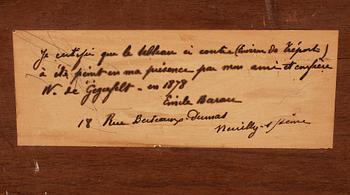 Je certifie que le tableau ci contre (Environ du Tréport)
à été peint en ma présence par mon ami et confrère
W. de Gegerfelt - en 1878
Emile Barau
18 Rue Berteaux-Dumas
Neuilly s/ Seine